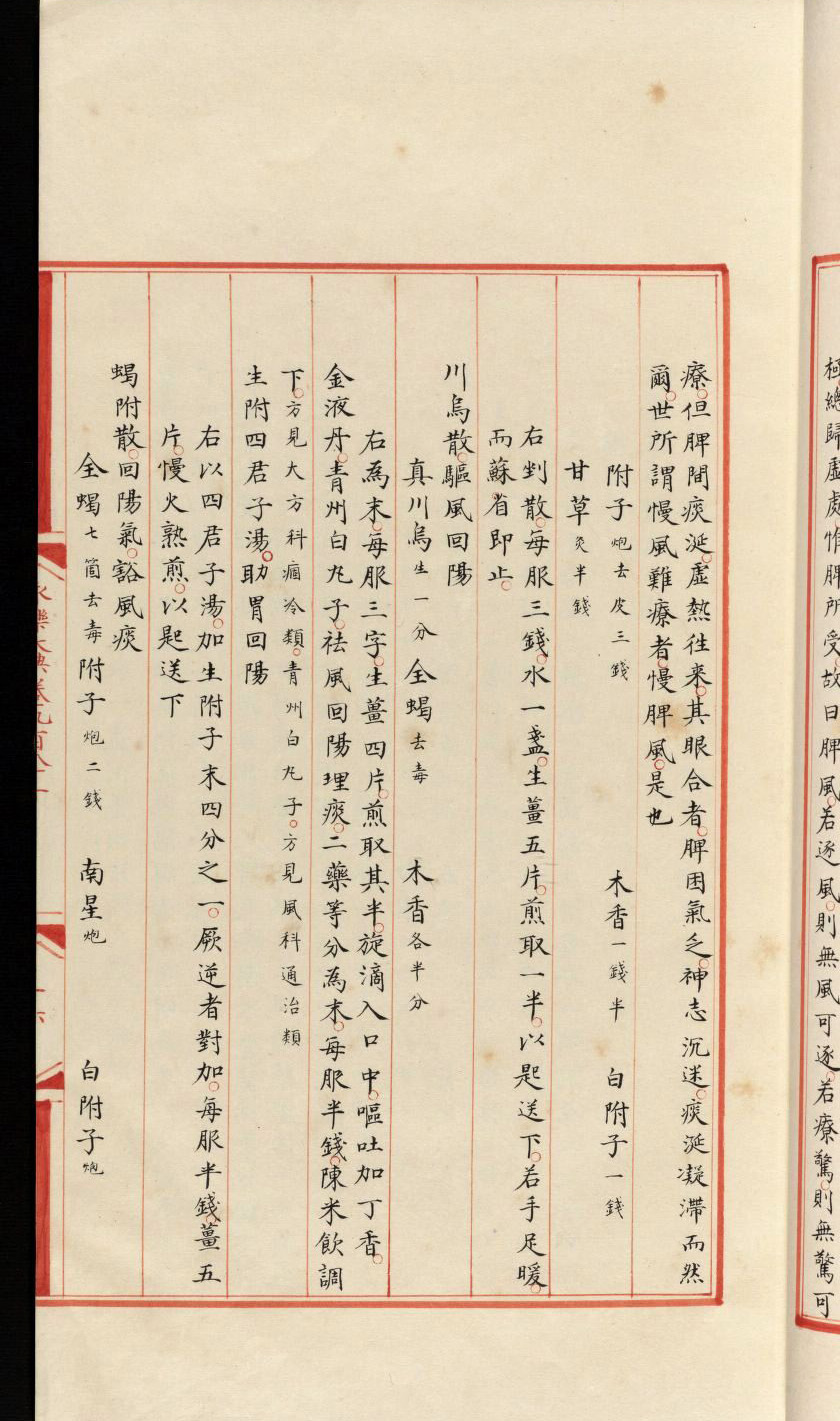 極總歸虛處惟脾所受故曰脾風若逐風則無風可逐若療驚則無驚可
療但脾間痰涎虛熱往來其眼合者脾困氣乏神志沉迷痰涎凝滯而然
爾世所謂慢風難療者慢脾風是也
附子炮去皮三錢 木香一錢半 白附子一錢
甘草炙半錢
右剉散每服三錢水一盞生薑五片煎取一半以匙送下若手足暖
而蘇省即止
川烏散驅風回陽
真川烏生一分 全蝎去毒 木香各半分
右為末每服三字生薑四片煎取其半旋滴入口中嘔吐加丁香
金液丹青州白丸子祛風回陽理痰二藥等分為末每服半錢陳米飲調
下方見大方科痼冷類青州白丸子方見風科通治類
生附四君子湯助胃回陽
右以四君子湯加生附子末四分之一厥逆者對加每服半錢薑五
片慢火熟煎以匙送下
蝎附散回陽氣豁風痰
全蝎七箇去毒 附子炮二錢 南星炮 白附子炮
永樂大典卷九百八十一